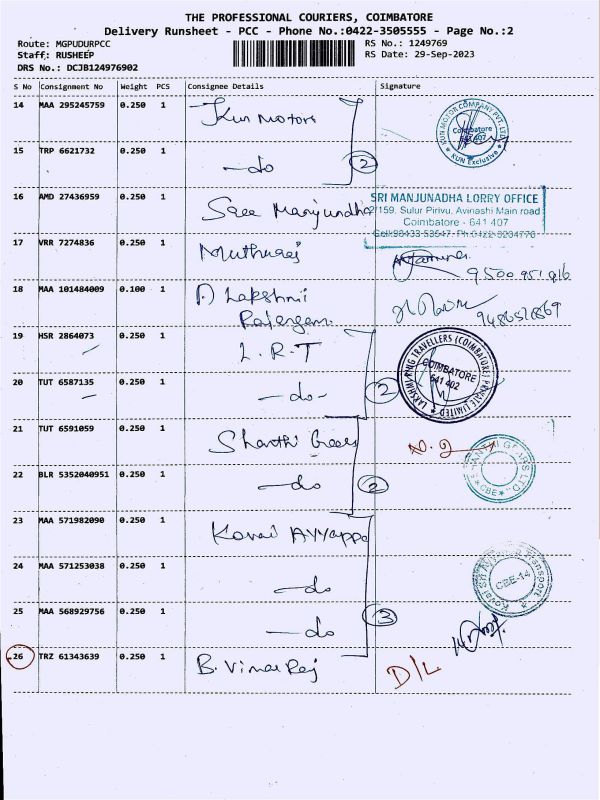 THE PROFESSIONAL COURIERS, COIMBATORE
Delivery Runsheet - PCC - Phone No.:0422-3505555 - Page No.:2
Route: MGPUDURPCC RS No.: 1249769
Staff: RUSHEEP RS Date: 29-Sep-2023
DRS No.: DCJB124976902
S No Consignment No Weight PCS Consignee Details Signature
14 MAA 295245759 0.250 1 Kun Motors
KUN MOTOR COMPANY PVT. LTD. Coimbatore 641 407 KUN Exclusive
15 TRP 6621732 0.250 1 —do 2
16 AMD 27436959 0.250 1 Sree Manjundha
SRI MANJUNADHA LORRY OFFICE
2/159, Sulur Pirivu, Avinashi Main road
Coimbatore - 641 407
Cell:98433 53547. Ph:0422
17 VRR 7274836 0.250 1 Muthuraj
9500951916
18 MAA 101484009 0.100 1 D Lakshmi
19 HSR 2864073 0.250 1 L.R.T
LAKSHMI RING TRAVELLERS (COIMBATORE) PRIVATE LIMITED COIMBATORE 641 402
20 TUT 6587135 0.250 1 —do- 2
21 TUT 6591059 0.250 1 Shanthi Gears
SHANTHI GEARS LTD. CBE
22 BLR 5352040951 0.250 1 —do 2
23 MAA 571982090 0.250 1 Kovai Ayyappa
24 MAA 571253038 0.250 1 —do
CBE-14
25 MAA 568929756 0.250 1 —do 3
26 TRZ 61343639 0.250 1 B. Vimal Raj D/L